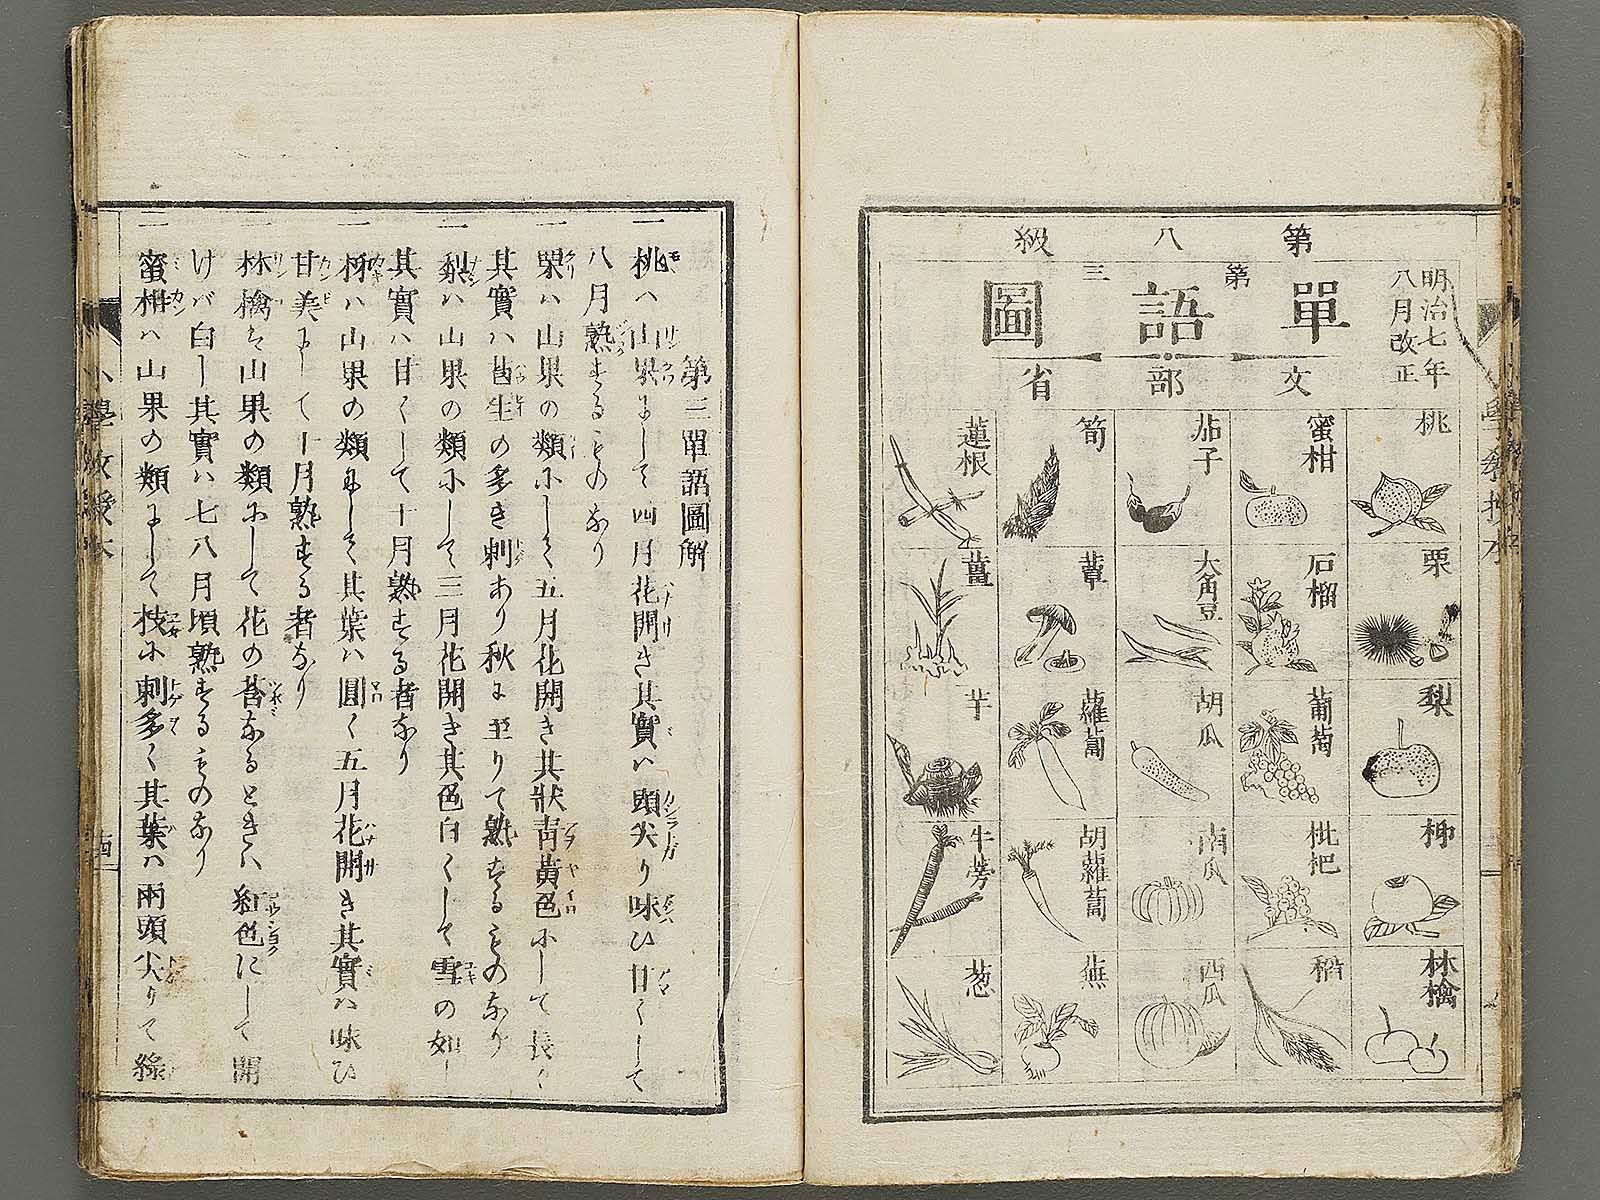 第八級
明治七年
八月改正
第三
單語圖
文部省
桃
栗
梨
柹
林檎
蜜柑
石榴
葡萄
枇杷
稻
茄子
大角豆
胡瓜
南瓜
西瓜
筍
蕈
蘿蔔
胡蘿蔔
蕪
蓮根
薑
芋
牛蒡
葱
第三單語圖解
一桃ハ山果にして四月花開き其實ハ頭尖り味ひ甘くして
八月熟するものなり
一栗ハ山果の類にして五月花開き其狀靑黃色にして長く
其實ハ苞生の多き刺あり秋に至りて熟するものなり
一梨ハ山果の類にして三月花開き其色白くして雪の如し
其實ハ甘くして十月熟する者なり
一柹ハ山果の類にして其葉ハ圓く五月花開き其實ハ味ひ
甘美にして十月熟する者なり
一林檎ハ山果の類にして花の莟なるときハ紅色にして開
けバ白し其實ハ七八月頃熟するものなり
一蜜柑ハ山果の類にして枝に刺多く其葉ハ兩頭尖りて綠
小學敎授本